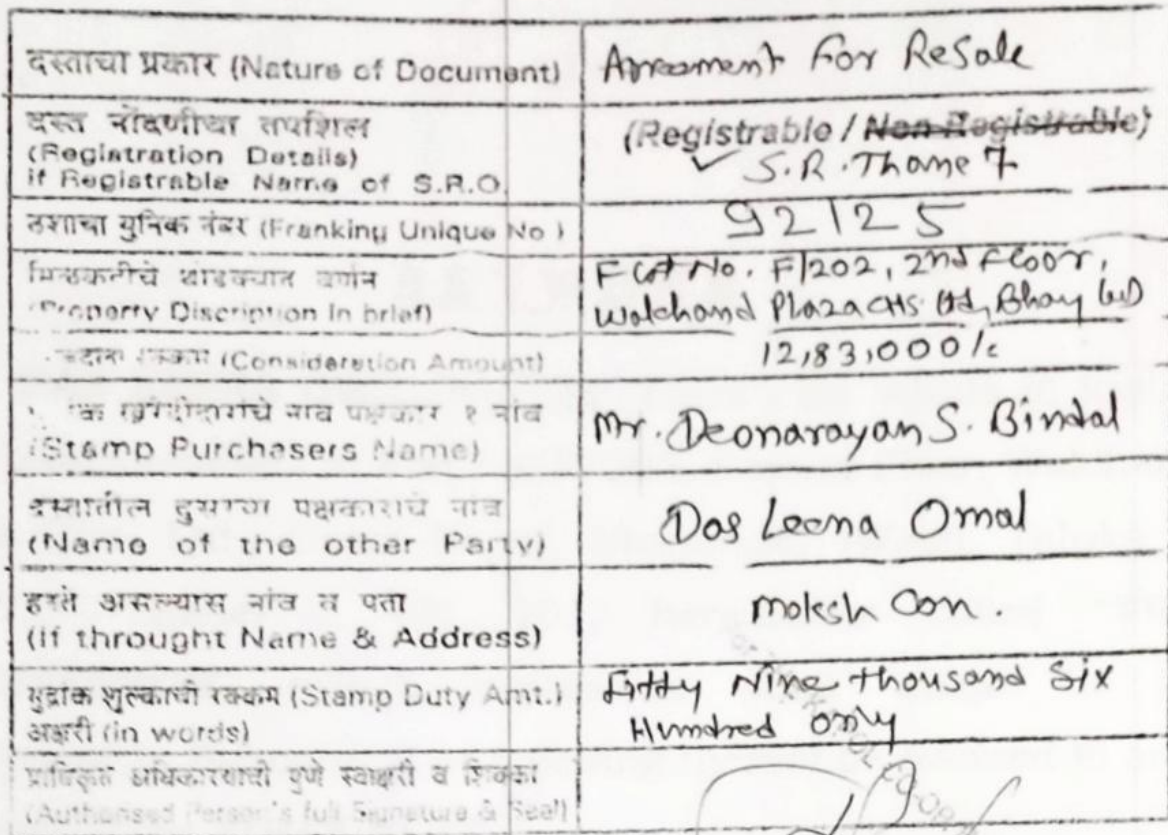 दस्ताचा प्रकार (Nature of Document)
Agreement For ReSale
दस्त नोंदणीचा तपशिल
(Registration Details)
if Registrable Name of S.R.O.
(Registrable / Non Registrable)
✓ S.R. Thane 7
ठशाचा युनिक नंबर (Franking Unique No )
92125
मिळकतीचे थोडक्यात वर्णन
(Property Discription in brief)
Flat No. F/202, 2nd Floor,
Walchand Plaza CHS Ltd, Bhay (W)
(Consideration Amount)
12,83,000/-
खरेदीदाराचे नाव पक्षकार १ नांव
(Stamp Purchasers Name)
Mr. Deonarayan S. Bindal
दस्तातील दुसऱ्या पक्षकाराचे नांव
(Name of the other Party)
Das Leena Omal
हस्ते असल्यास नांव व पता
(If throught Name & Address)
moksh Con.
मुद्रांक शुल्काची रक्कम (Stamp Duty Amt.)
अक्षरी (in words)
Fifty Nine thousand Six
Hundred only
प्राधिकृत अधिकाऱ्याची पुणे स्वाक्षरी व शिक्का
(Authorised Person's full Signature & Seal)